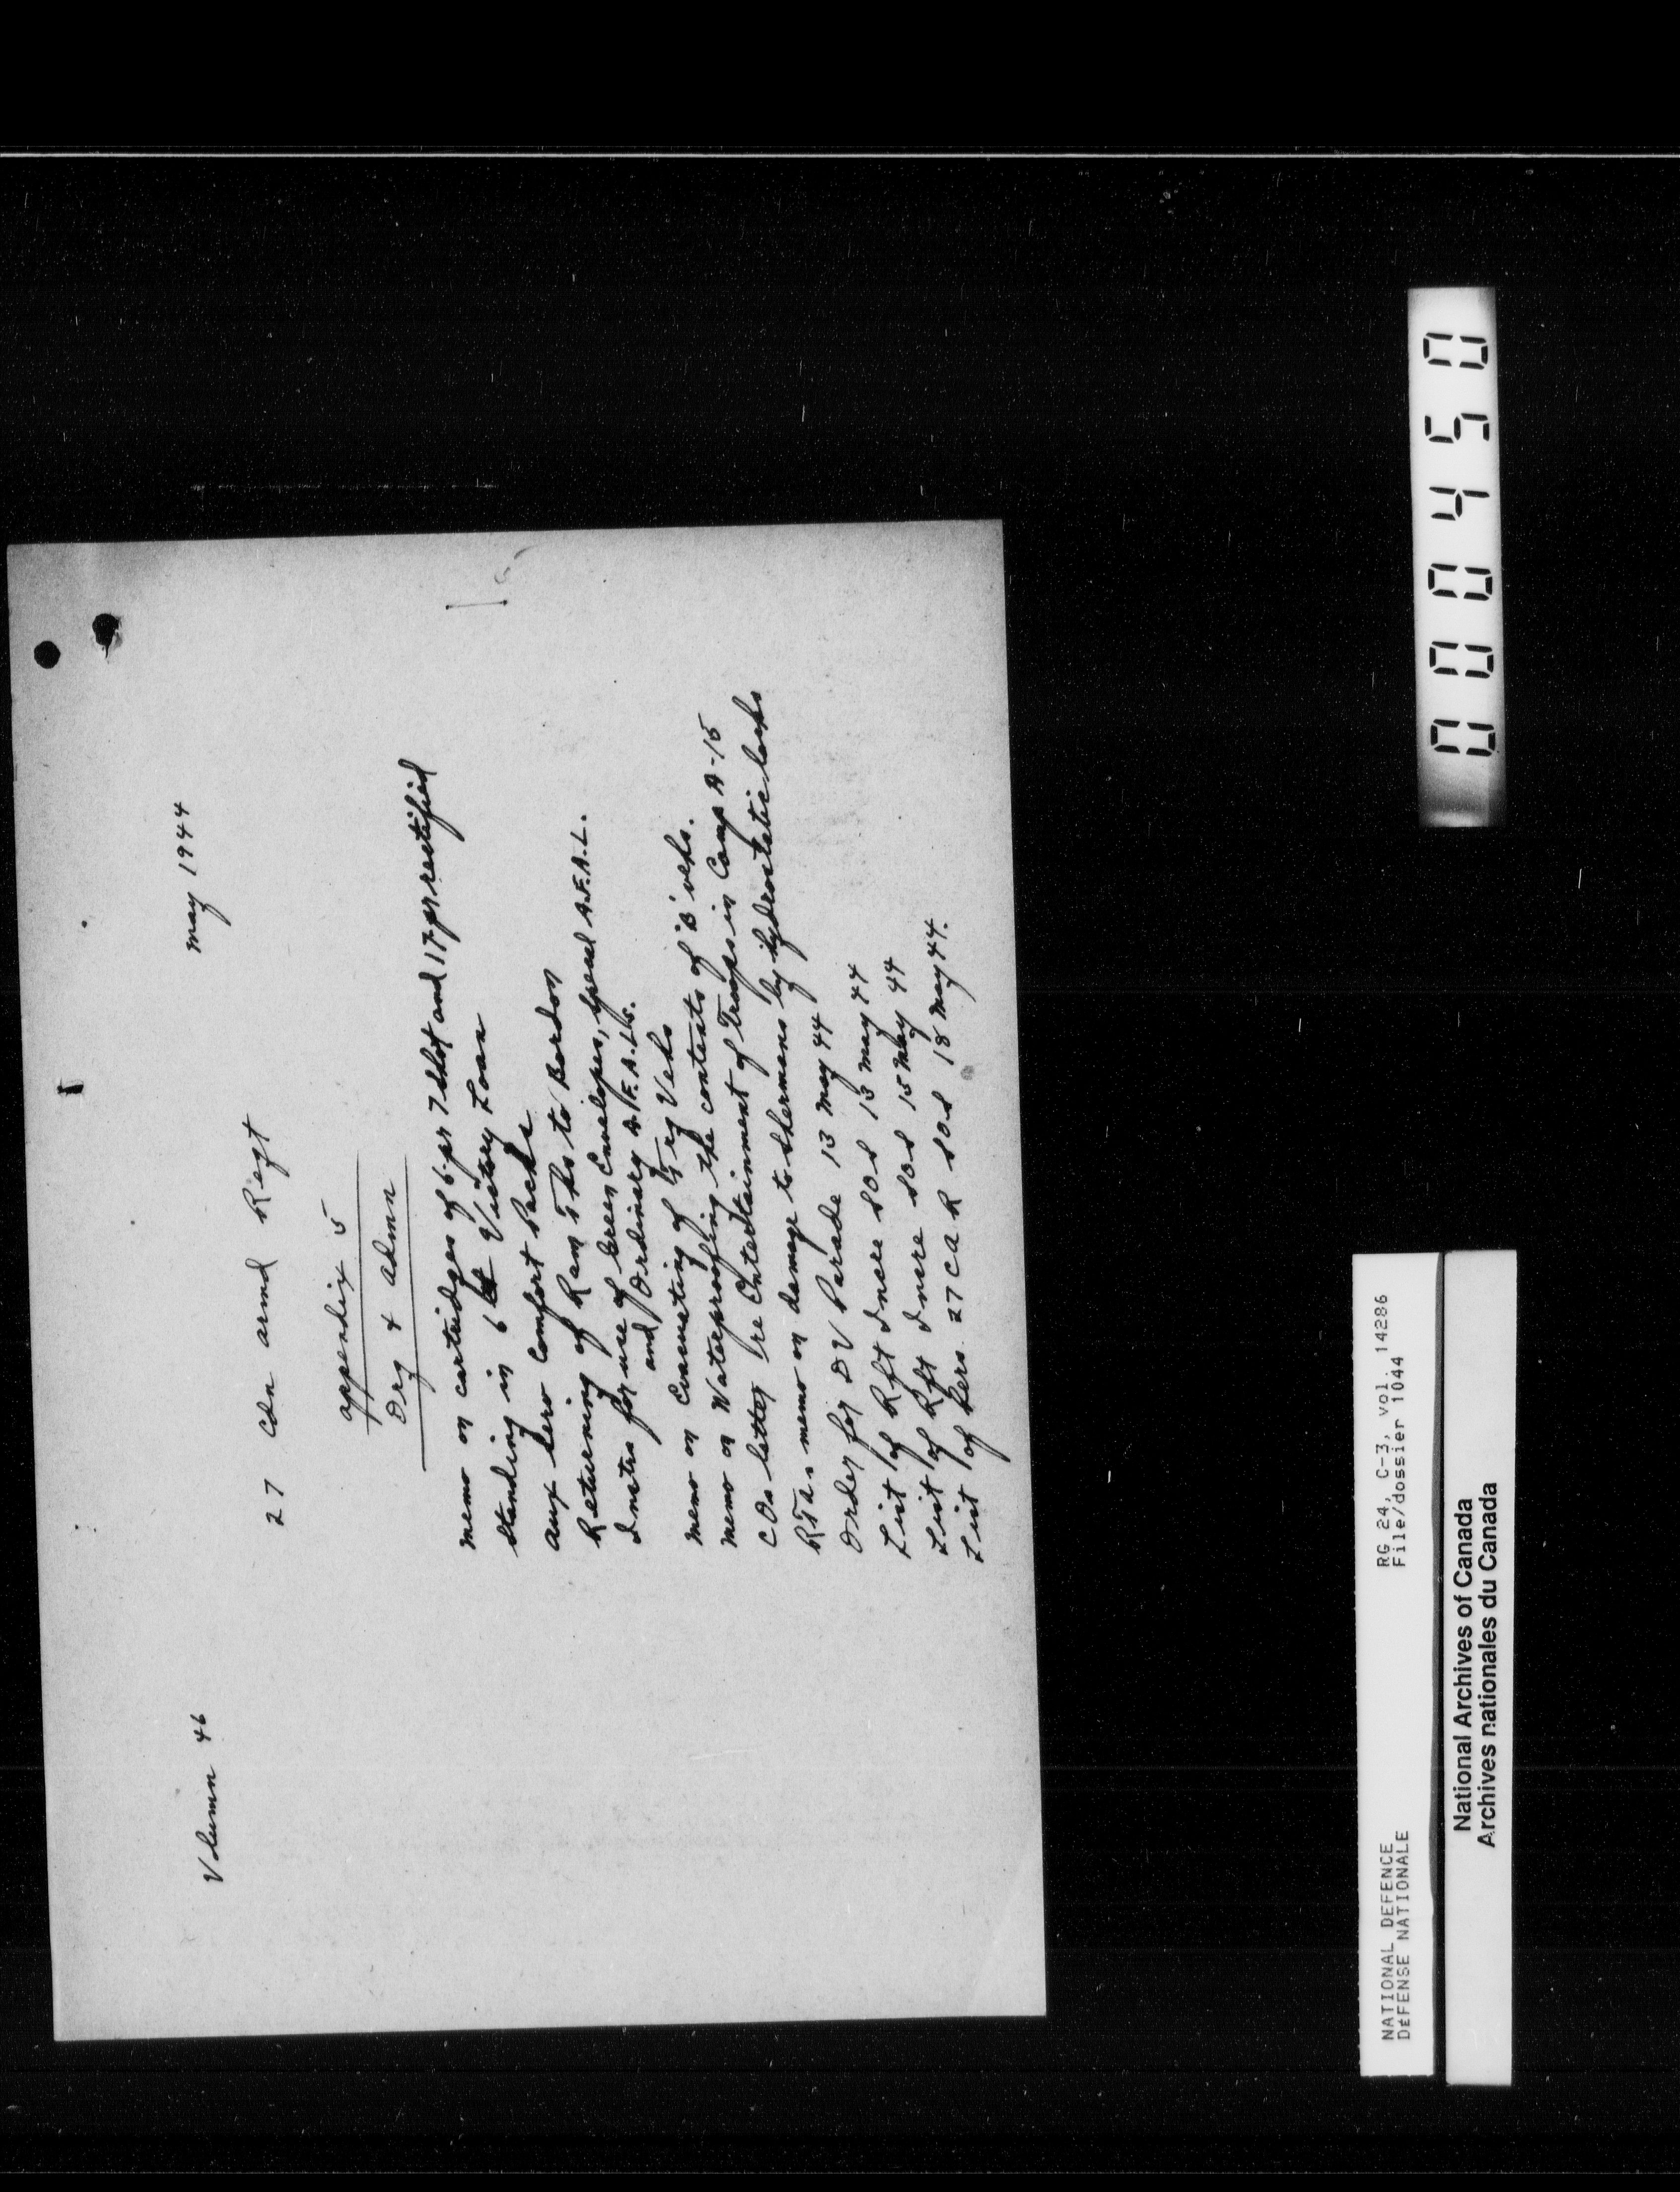 Volumn 46
May 1944
27 Cdn Armd Regt
Appendix 5
Org & Admn
Memo on cartridges of 6-pr 7 Shot and 17 pr rectified
Standing in 6th Victory Loan
Aux Sero Comfort Packs
Returning of Ram Tks to Bordon
Instrs for use of Green Envelopes, Special A.F.A.L.
and Ordinary A.F.A.Ls.
Memo on Evacuating of Trg Vehs
Memo on Waterproofing the contents of 'B' vehs.
C Os letter re Entertainment of Troops in Camp A-15
RTa. memo on damage to Shermans by hydrostatic locks
Order for DV Parade 13 May 44
List of Rft Incre SOS 13 May 44
List of Rft Incre SOS 15 May 44
List of Pers. 27 CAR SOS 18 May 44.
000450
NATIONAL DEFENCE
DÉFENSE NATIONALE
RG 24, C-3, vol. 14286
File/dossier 1044
National Archives of Canada
Archives nationales du Canada